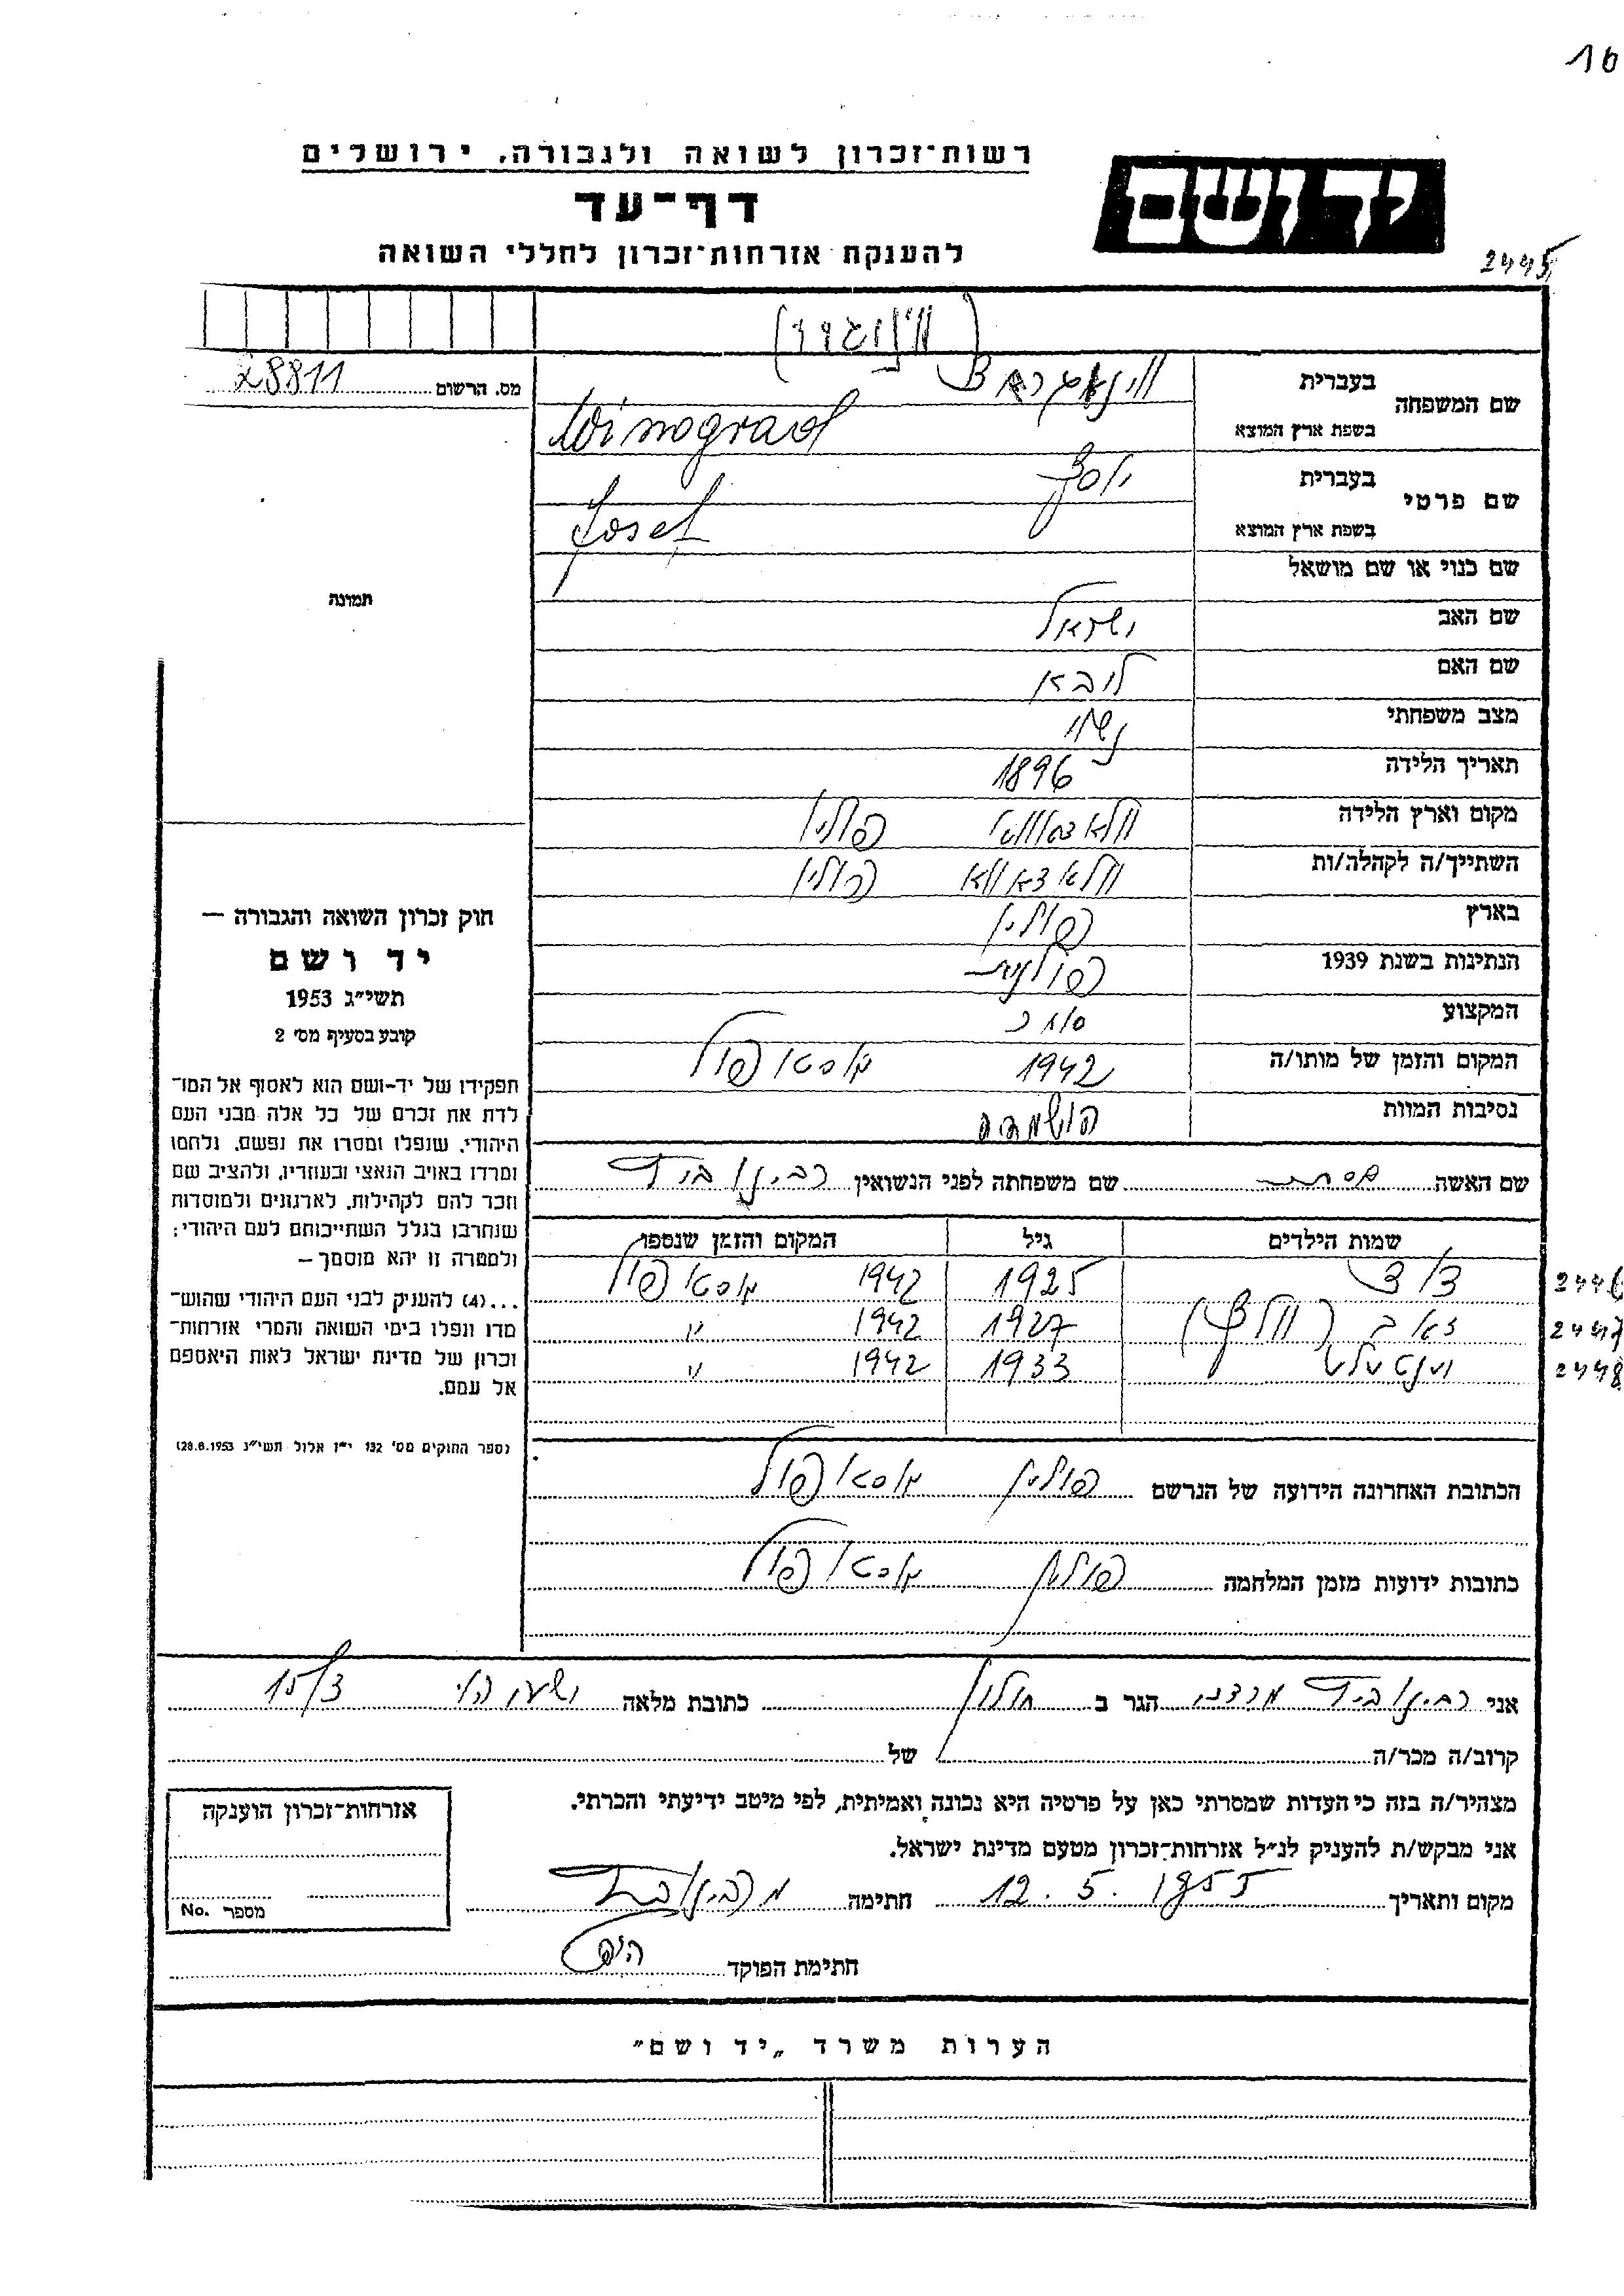 16
רשות־זכרון לשואה ולגבורה, ירושלים
יד ושם
דף־עד
להענקת אזרחות־זכרון לחללי השואה
2445
(וינוגרד)
מס. הרשום 28811
שם המשפחה
בעברית
בשפת ארץ המוצא Winograd
שם פרטי
בעברית יוסף
בשפת ארץ המוצא Josef
שם כנוי או שם מושאל
שם האב ישראל
שם האם ליבא
מצב משפחתי נשוי
תאריך הלידה 1896
מקום וארץ הלידה פולין
השתייך/ה לקהלה/ות פולין
בארץ פולין
הנתינות בשנת 1939 פולנית
המקצוע סוחר
המקום והזמן של מותו/ה 1942
נסיבות המוות הושמד
תמונה
חוק זכרון השואה והגבורה —
יד ושם
תשי״ג 1953
קובע בסעיף מס׳ 2
תפקידו של יד-ושם הוא לאסוף אל המו־
לדת את זכרם של כל אלה מבני העם
היהודי, שנפלו ומסרו את נפשם, נלחמו
ומרדו באויב הנאצי ובעוזריו, ולהציב שם
וזכר להם לקהילות, לארגונים ולמוסדות
שנחרבו בגלל השתייכותם לעם היהודי;
ולמטרה זו יהא מוסמך –
...(4) להעניק לבני העם היהודי שהוש־
מדו ונפלו בימי השואה והמרי אזרחות־
זכרון של מדינת ישראל לאות היאספם
אל עמם.
(ספר החוקים מס׳ 132 י״ז אלול תשי״ג 28.8.1953)
שם האשה שם משפחתה לפני הנשואין רבינוביץ
שמות הילדים גיל המקום והזמן שנספו
1925 1942 2446
זאב (וולף) 1927 1942 " 2447
1933 1942 " 2448
הכתובת האחרונה הידועה של הנרשם פולין
כתובות ידועות מזמן המלחמה פולין
אני רבינוביץ מרדכי הגר ב חולון כתובת מלאה 15/3
קרוב/ה מכר/ה של
מצהיר/ה בזה כי העדות שמסרתי כאן על פרטיה היא נכונה ואמיתית, לפי מיטב ידיעתי והכרתי.
אני מבקש/ת להעניק לנ״ל אזרחות־זכרון מטעם מדינת ישראל.
מקום ותאריך 12.5.1955 חתימה מ רבינוביץ
חתימת הפוקד
אזרחות־זכרון הוענקה
מספר No.
הערות משרד „יד ושם״